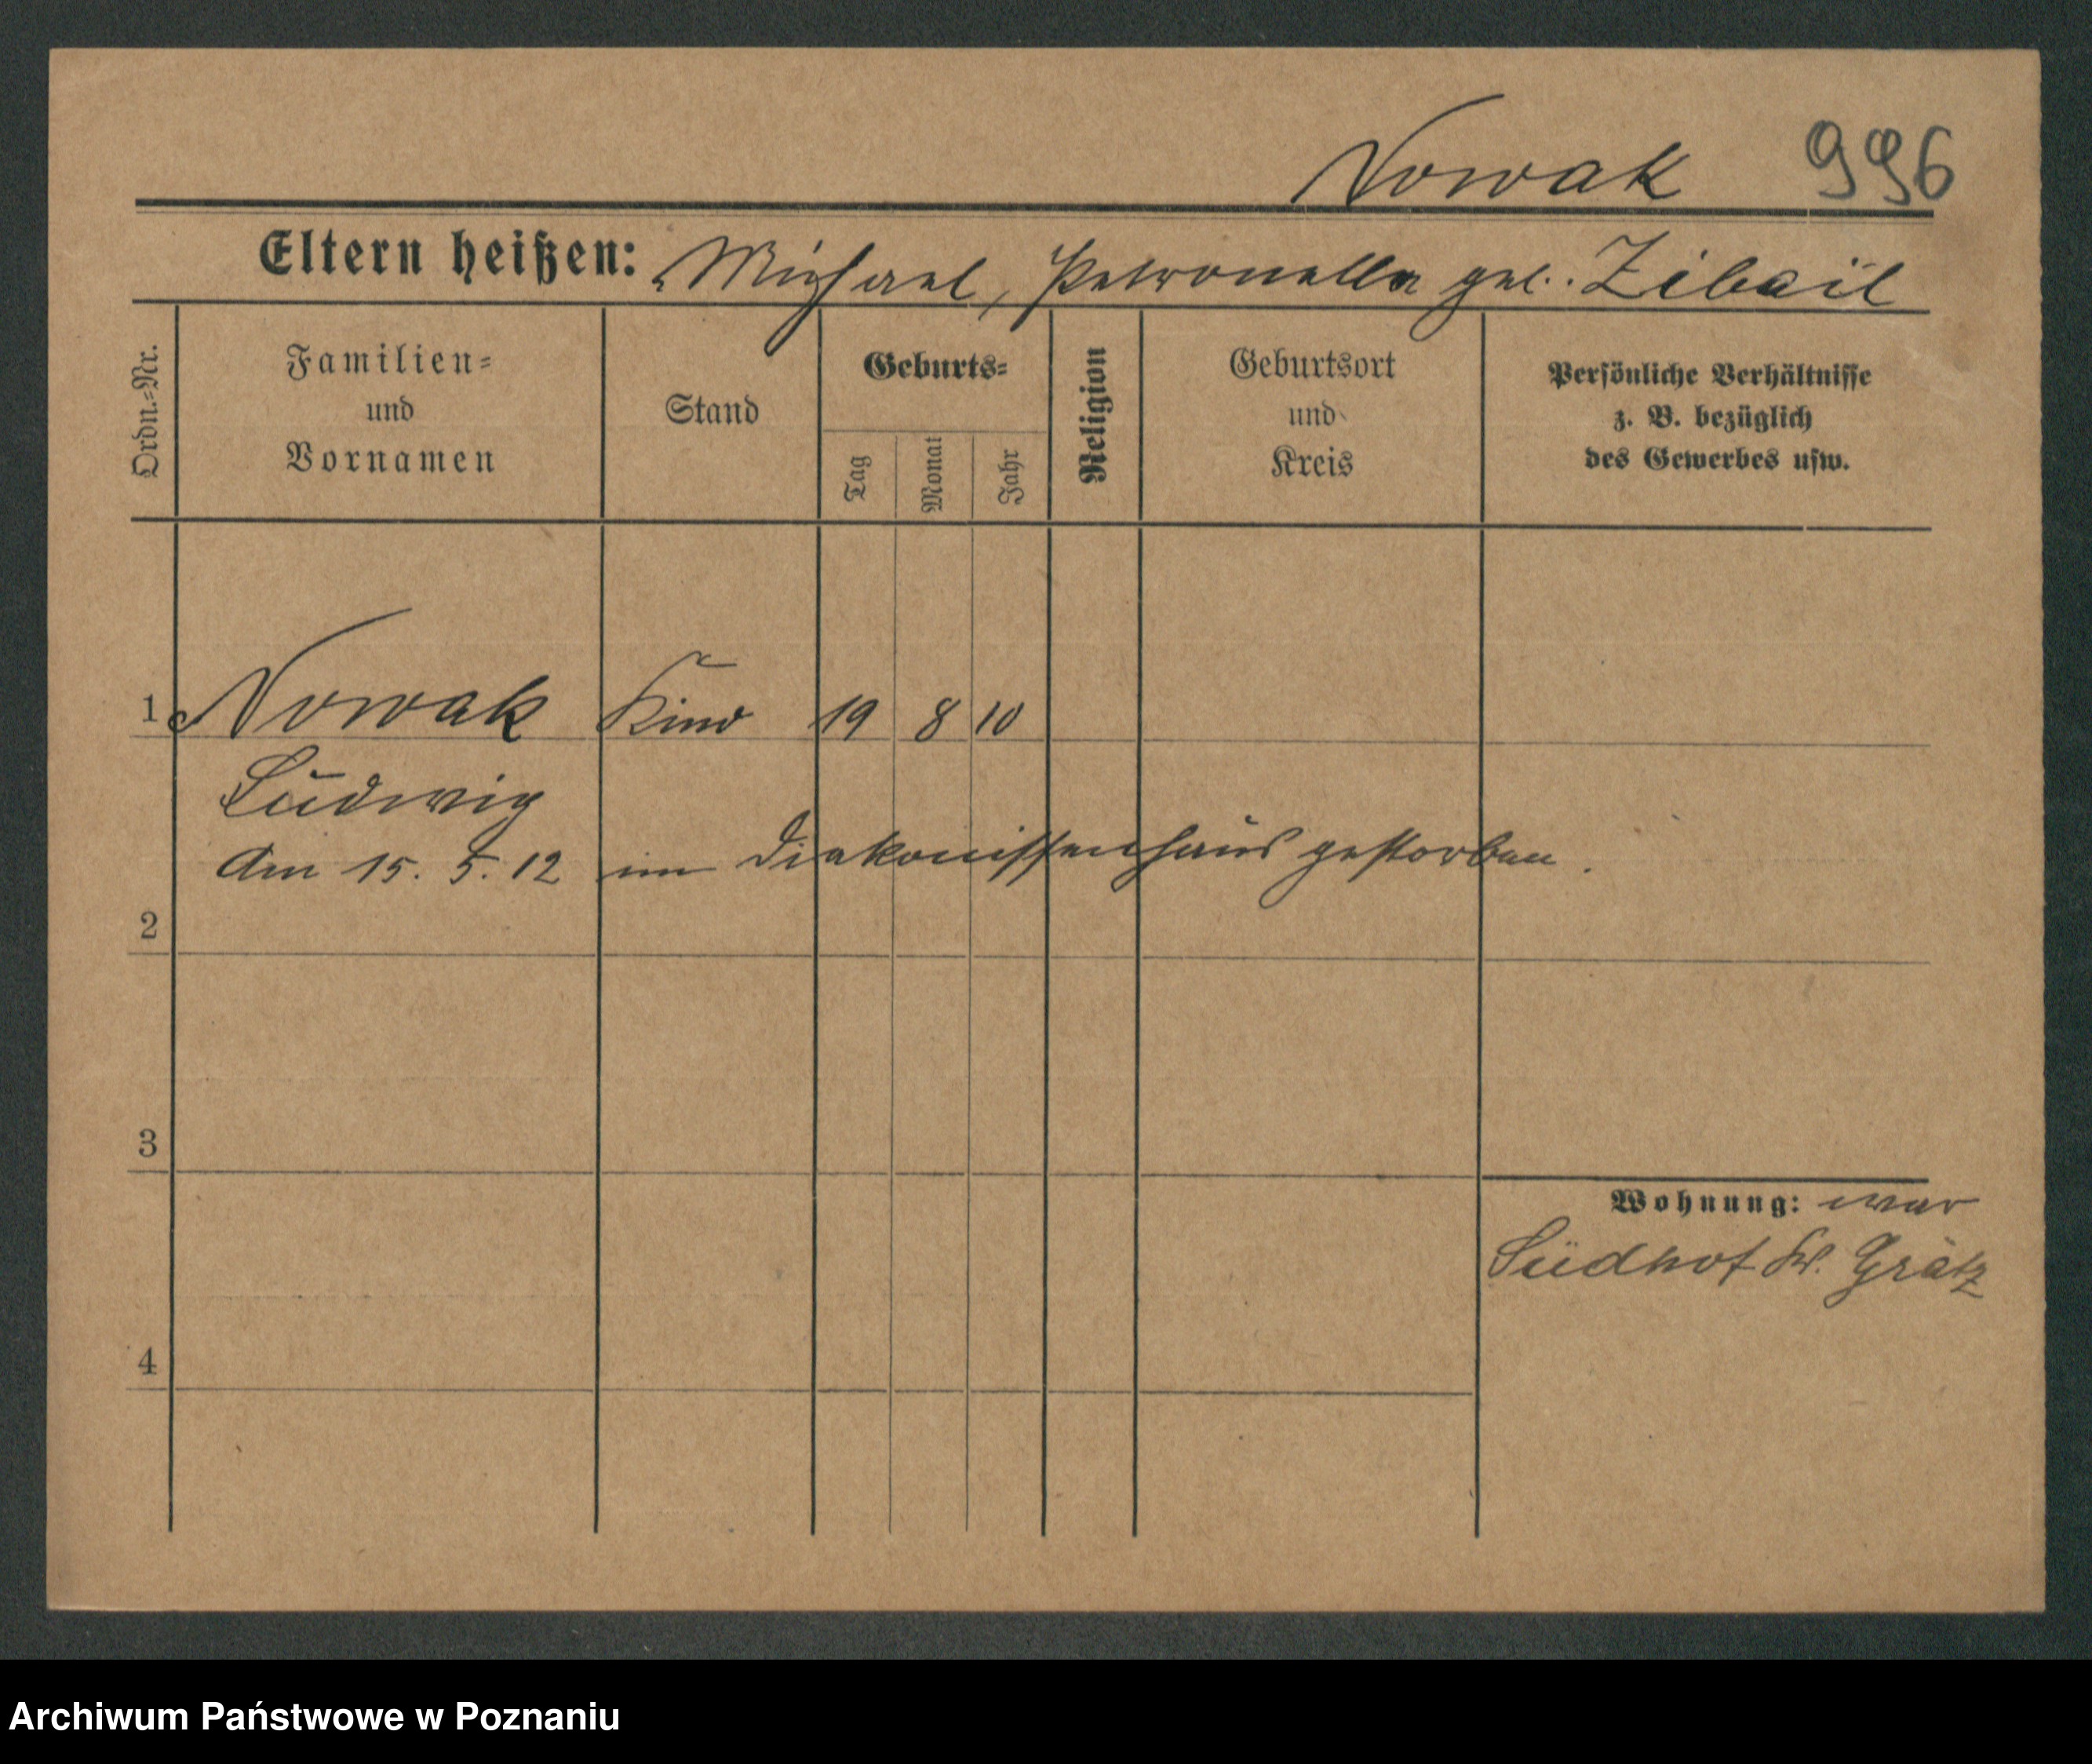 Nowak 996
Eltern heißen: Michael, Petronella geb. Zibail
Ordn.-Nr.
Familien-
und
Vornamen
Stand
Geburts-
Tag
Monat
Jahr
Religion
Geburtsort
und
Kreis
Persönliche Verhältnisse
z. B. bezüglich
des Gewerbes usw.
1 Nowak Kind 19 8 10
Ludwig
Am 15. 5. 12 im Diakonissenhaus gestorben.
2
3
Wohnung: war
Südhof Kr. Grätz
4
Archiwum Państwowe w Poznaniu